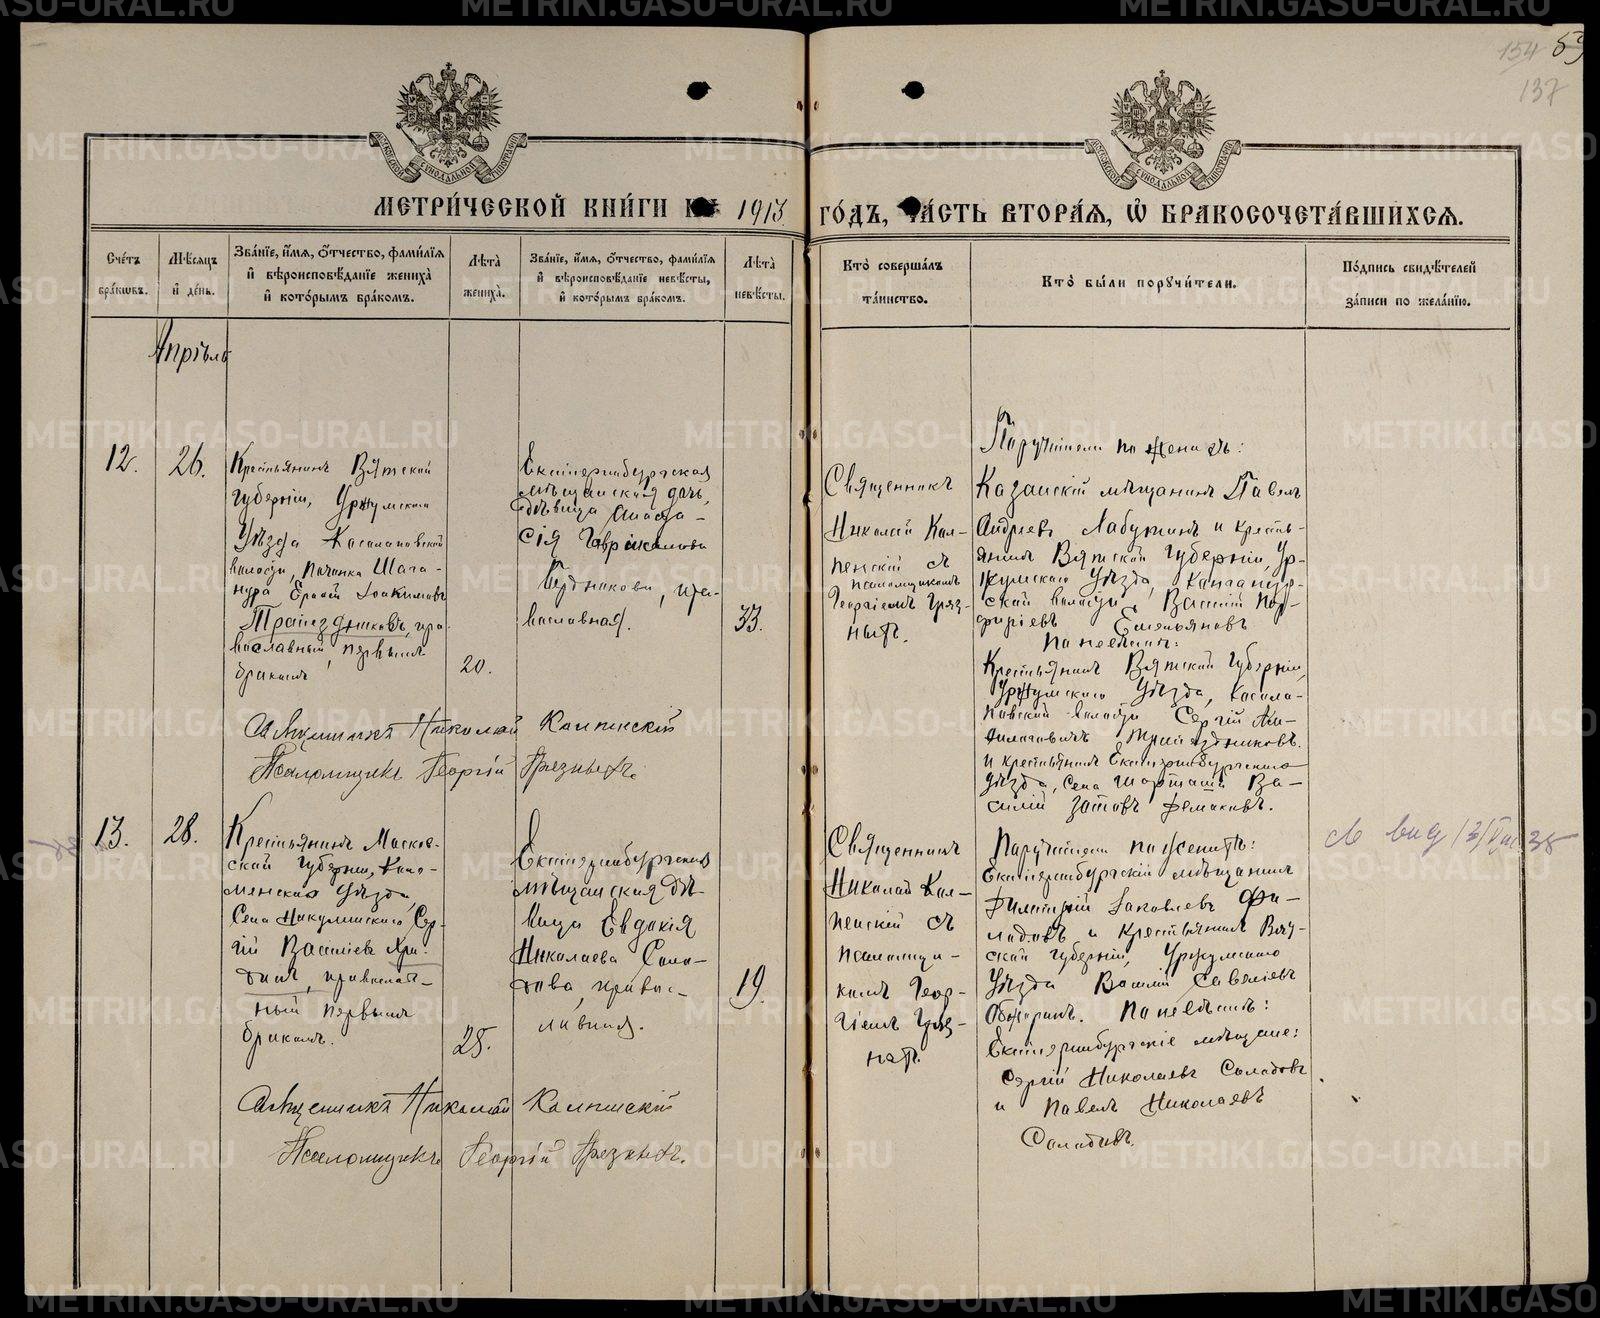 154 59
137
МЕТРИ́ЧЕСКОЙ КНИ́ГИ НА 1913 ГО́ДЪ, ЧА́СТЬ ВТОРА́Я, Ѡ БРАКОСОЧЕТА́ВШИХСЯ.
Сче́тъ бра́кѡвъ.
Мѣ́сяцъ и де́нь.
Зва́нїе, и́мя, о́тчество, фами́лїя и вѣроисповѣ́данїе жениха̀ и кото́рымъ бра́комъ.
Лѣ́та жениха̀.
Зва́нїе, и́мя, о́тчество, фами́лїя и вѣроисповѣ́данїе невѣ́сты, и кото́рымъ бра́комъ.
Лѣ́та невѣ́сты.
Кто̀ соверша́лъ та́инство.
Кто̀ бы́ли порꙋчи́тели.
По́дпись свидѣ́телей за́писи по жела́нїю.
Апрѣль
12.
26.
Крестьянинъ Вятской
губернiи, Уржумскаго
Уѣзда Косолаповской
волости, Починка Шага-
нура Ермiй Iоакимовъ
Трапездниковъ, пра-
вославный, первымъ
бракомъ
20.
Екатеринбургская
мѣщанская дочь,
дѣвица Анаста-
сiя Гаврiилова
Бердникова, пра-
вославная.
33.
Священникъ
Николай Кал-
пенскiй съ
псаломщикомъ
Георгiемъ Гряз-
ныхъ.
Поручители по женихѣ:
Казанскiй мѣщанинъ Павелъ
Андреевъ Лабутинъ и кресть-
янинъ Вятской губернiи, Ур-
жумскаго Уѣзда,
ской волости Василiй Пор-
фирiевъ Емельяновъ
По невѣстѣ:
Крестьянинъ Вятской губернiи,
Уржумскаго Уѣзда, Косола-
повской волости Сергiй
Трапездниковъ
и крестьянинъ Екатеринбургскаго
Уѣзда, Села Шарташъ Ва-
силiй Зотовъ
Священникъ Николай Калпинскiй
Псаломщикъ Георгiй Грязныхъ.
13.
28.
Крестьянинъ Москов-
ской губернiи, Коло-
менскаго Уѣзда,
Села Никулинскаго Сер-
гiй Василiевъ
православ-
ный первымъ
бракомъ.
25.
Екатеринбургская
мѣщанская дѣ-
вица Евдокiя
Николаева Соло-
дова, правос-
лавная.
19.
Священникъ
Николай Кал-
пенскiй съ
псаломщи-
комъ Геор-
гiемъ Гряз-
ныхъ.
Поручители по женихѣ:
Екатеринбургскiй мѣщанинъ
Яковлевъ
и крестьянинъ Вят-
ской губернiи, Уржумскаго
Уѣзда Василiй Савелiевъ
По невѣстѣ:
Екатеринбургскiе мѣщане:
Сергiй Николаевъ Солодовъ
и Павелъ Николаевъ
Солодовъ.
Священникъ Николай Калпинскiй
Псаломщикъ Георгiй Грязныхъ.
METRIKI.GASO-URAL.RU